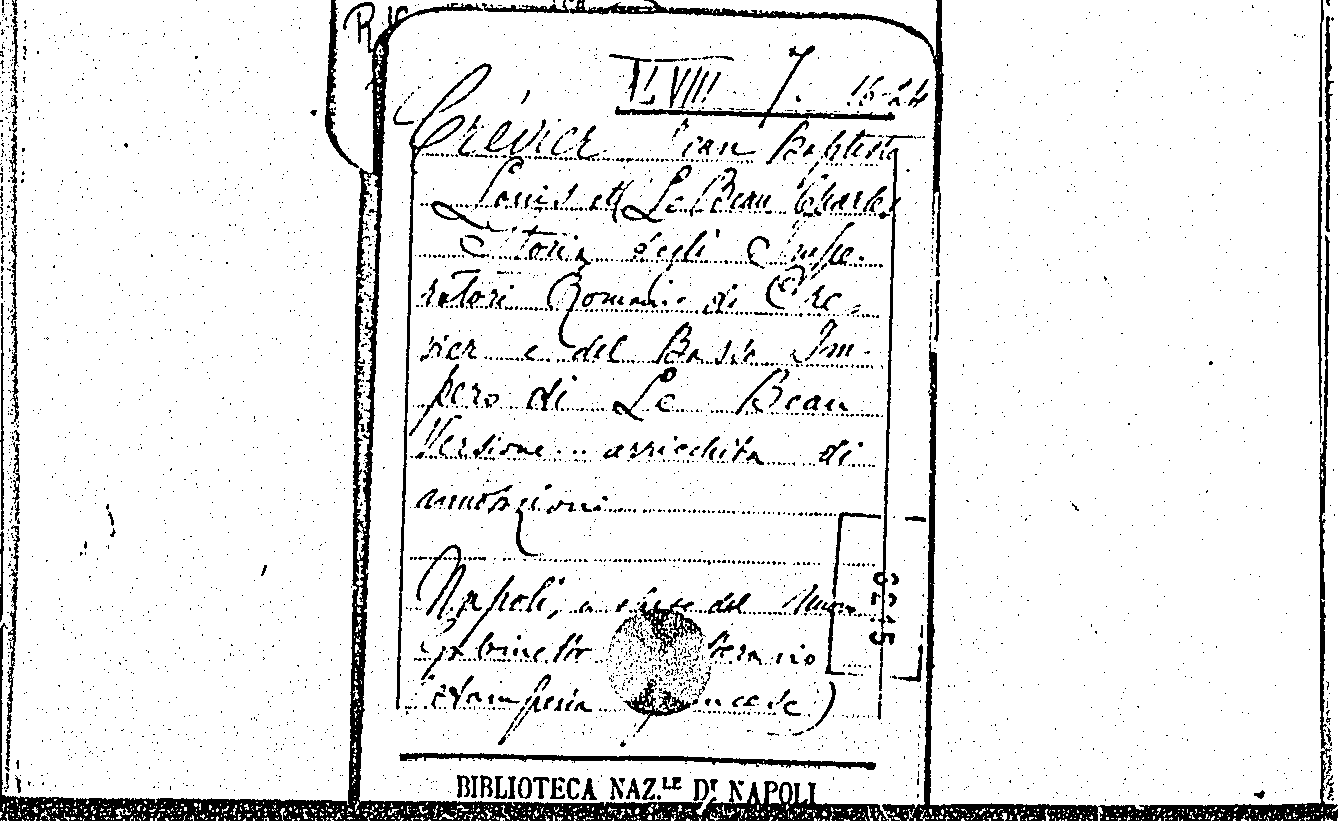 XLVIII 7. 16-24
Crévier Jean Baptiste
Louis et Le Beau Charles
Storia degli Impe-
ratori Romani di Cre-
vier e del Basso Im-
pero di Le Beau
Versione... arricchita di
annotazioni
Napoli, a spese del Nuovo
Gabinetto
(Stamperia francese)
6215
BIBLIOTECA NAZ.LE DI NAPOLI